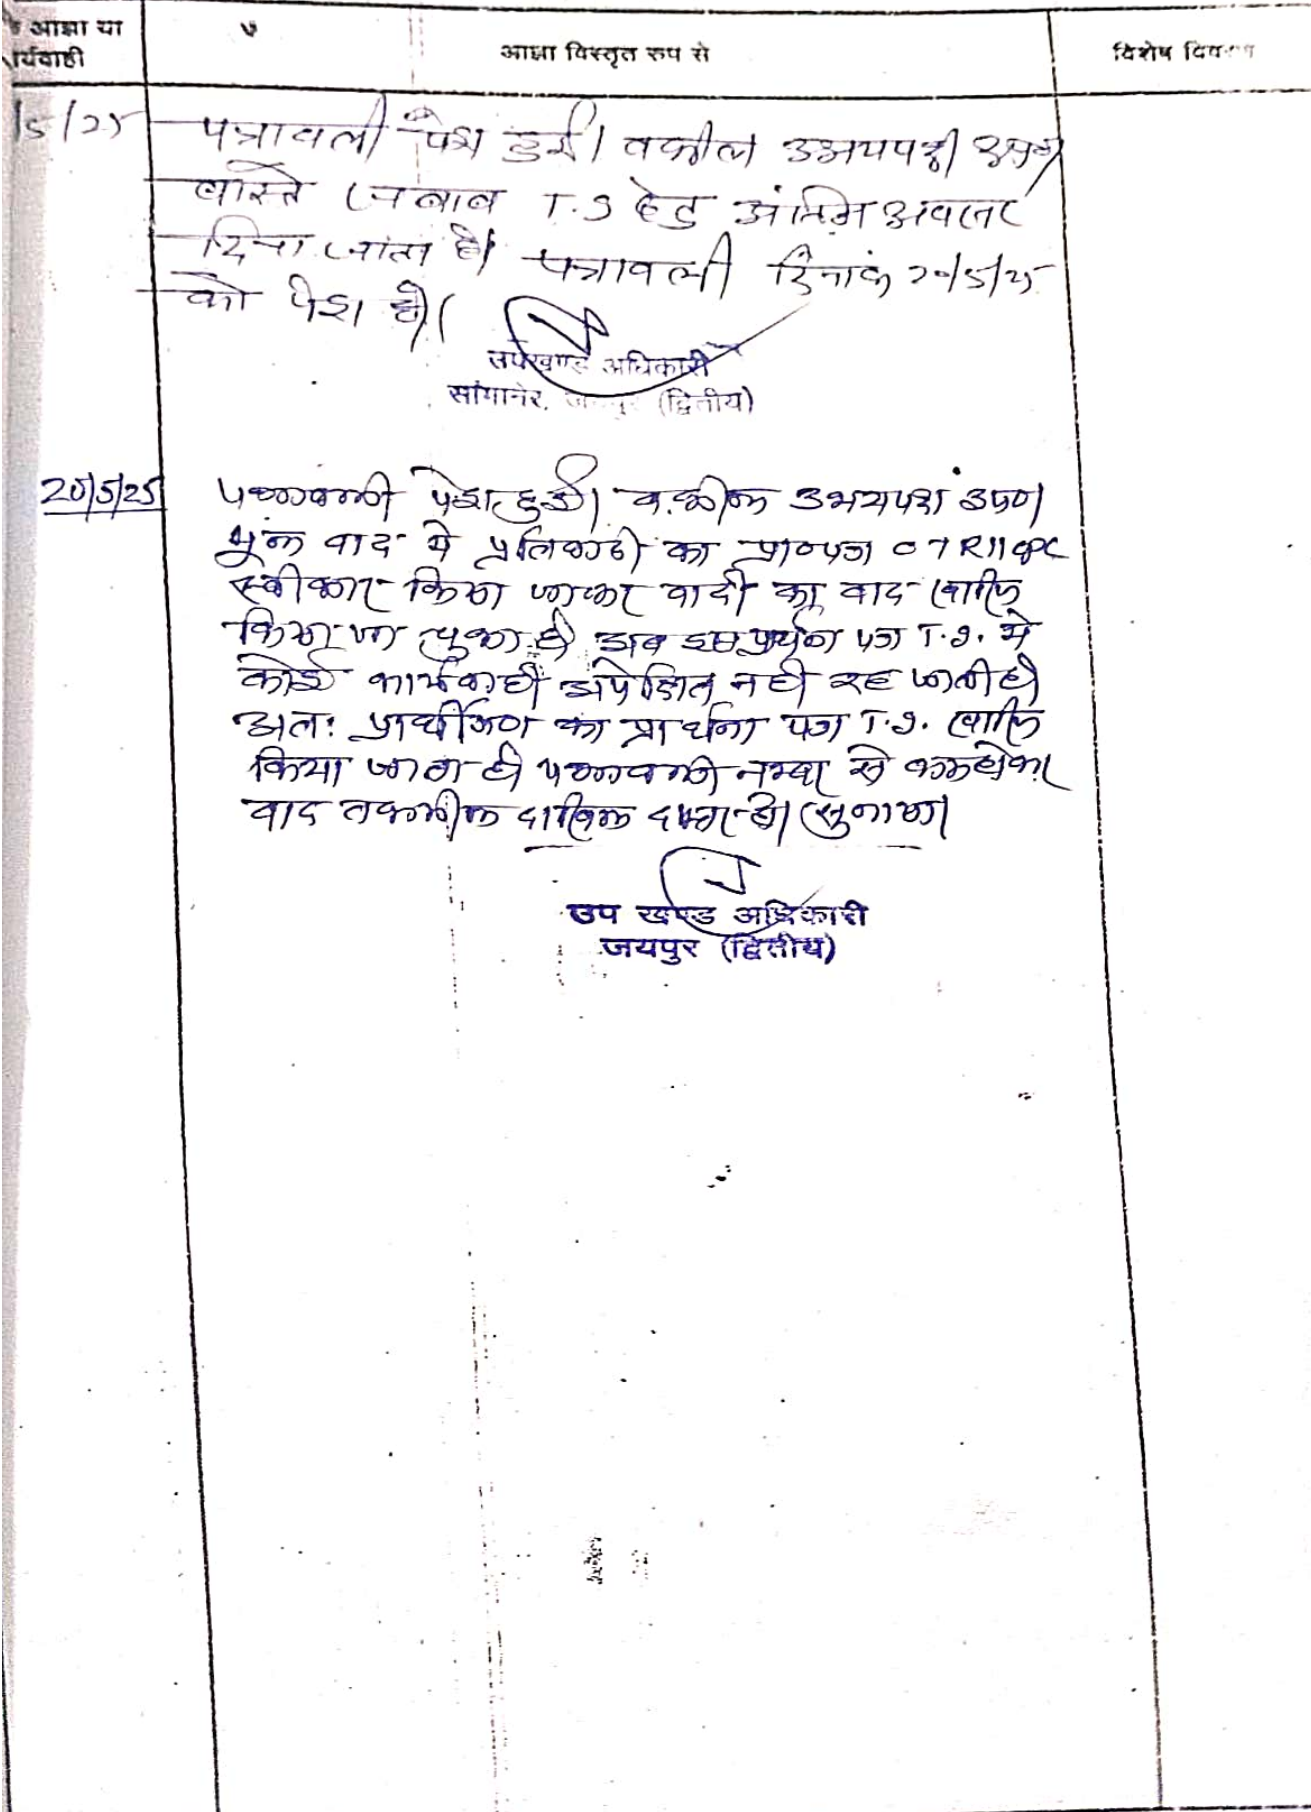 आज्ञा या
र्यवाही
आज्ञा विस्तृत रुप से
विशेष विवरण
/5/25 पत्रावली पेश हुई। वकील उभयपक्ष उप०
वास्ते जवाब T.I हेतु अंतिम अवसर
दिया जाता है। पत्रावली दिनांक 20/5/25
को पेश हो।
उपखण्ड अधिकारी
सांगानेर, जयपुर (द्वितीय)
20/5/25 पत्रावली पेश हुई। वकील उभयपक्ष उप०।
मूल वाद मे प्रतिवादी का प्रा०पत्र 07R11 CPC
स्वीकार किया जाकर वादी का वाद खारिज
किया जा चुका है। अब इस प्रार्थना पत्र T.I. मे
कोई कार्यवाही अपेक्षित नही रह जाती है।
अतः प्रार्थीगण का प्रार्थना पत्र T.I. खारिज
किया जाता है। पत्रावली नम्बर से कम होकर
वाद तकमील दाखिल दफ्तर हो। सुनाया।
उप खण्ड अधिकारी
जयपुर (द्वितीय)